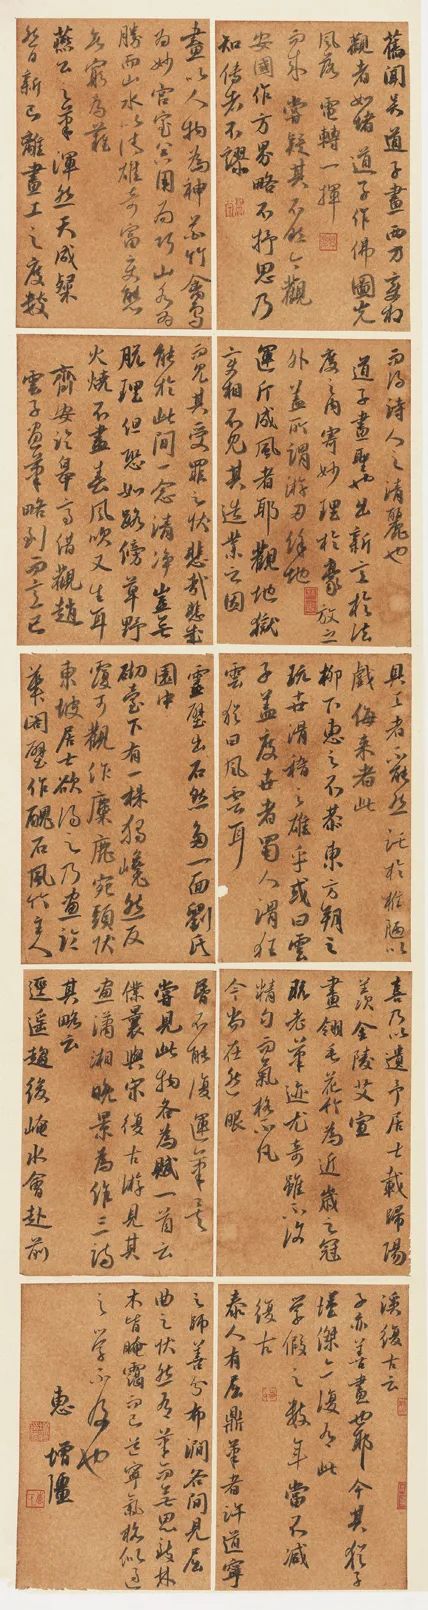 舊聞吴道子畫西方變相
觀者如堵道子作佛圖光
風落電轉一揮
而成嘗疑其不然今觀
安國作方界略不抒思乃
知傳者不謬
畫以人物為神花竹禽鳥
為妙宫室器用為巧山水為
勝而山水以清雄奇富變態
無窮為難
燕公之筆渾然天成粲
然日新已離畫工之度數
而得詩人之清麗也
道子畫聖也出新意於法
度之内寄妙理於豪放之
外盖所謂游刃餘地
運斤成風者耶觀地獄
變相不見其造業之因
而見其受罪之狀悲哉悲哉
能於此間一念清净豈無
脱理但恐如路傍草野
火燒不盡春風吹又生耳
齊安臨皋亭借觀趙
雲子畫筆略到而意已
具工者不能然託於椎陋以
戲侮来者此
柳下惠之不恭東方朔之
玩世滑稽之雄乎或曰雲
子盖度世者蜀人謂狂
雲猶曰風雲耳
靈壁出石然多一面劉氏
園中
砌臺下有一株獨巉然反
覆可觀作麋鹿宛頸狀
東坡居士欲得之乃畫臨
華閣壁作醜石風竹主人
喜乃以遺予居士載歸陽
羨金陵艾宣
畫翎毛花竹為近歲之冠
既老筆迹尤奇雖不復
精匀而氣格不凡
今尚在然眼
昏不能復運筆矣
嘗見此物各為賦一首云
僕曩與宋復古游見其
畫瀟湘晚景為作三詩
其略云
逕遥趨後崦水會赴前
溪復古云
子亦善畫也耶今其猶子
傑亦復有此
學假之數年當不減
復古
泰人有屈鼎筆者許道寧
之師善分布澗谷間見屈
曲之狀然有筆而無思致林
木皆晻靄而已道寧氣格似過
之學不及也
惠增疆